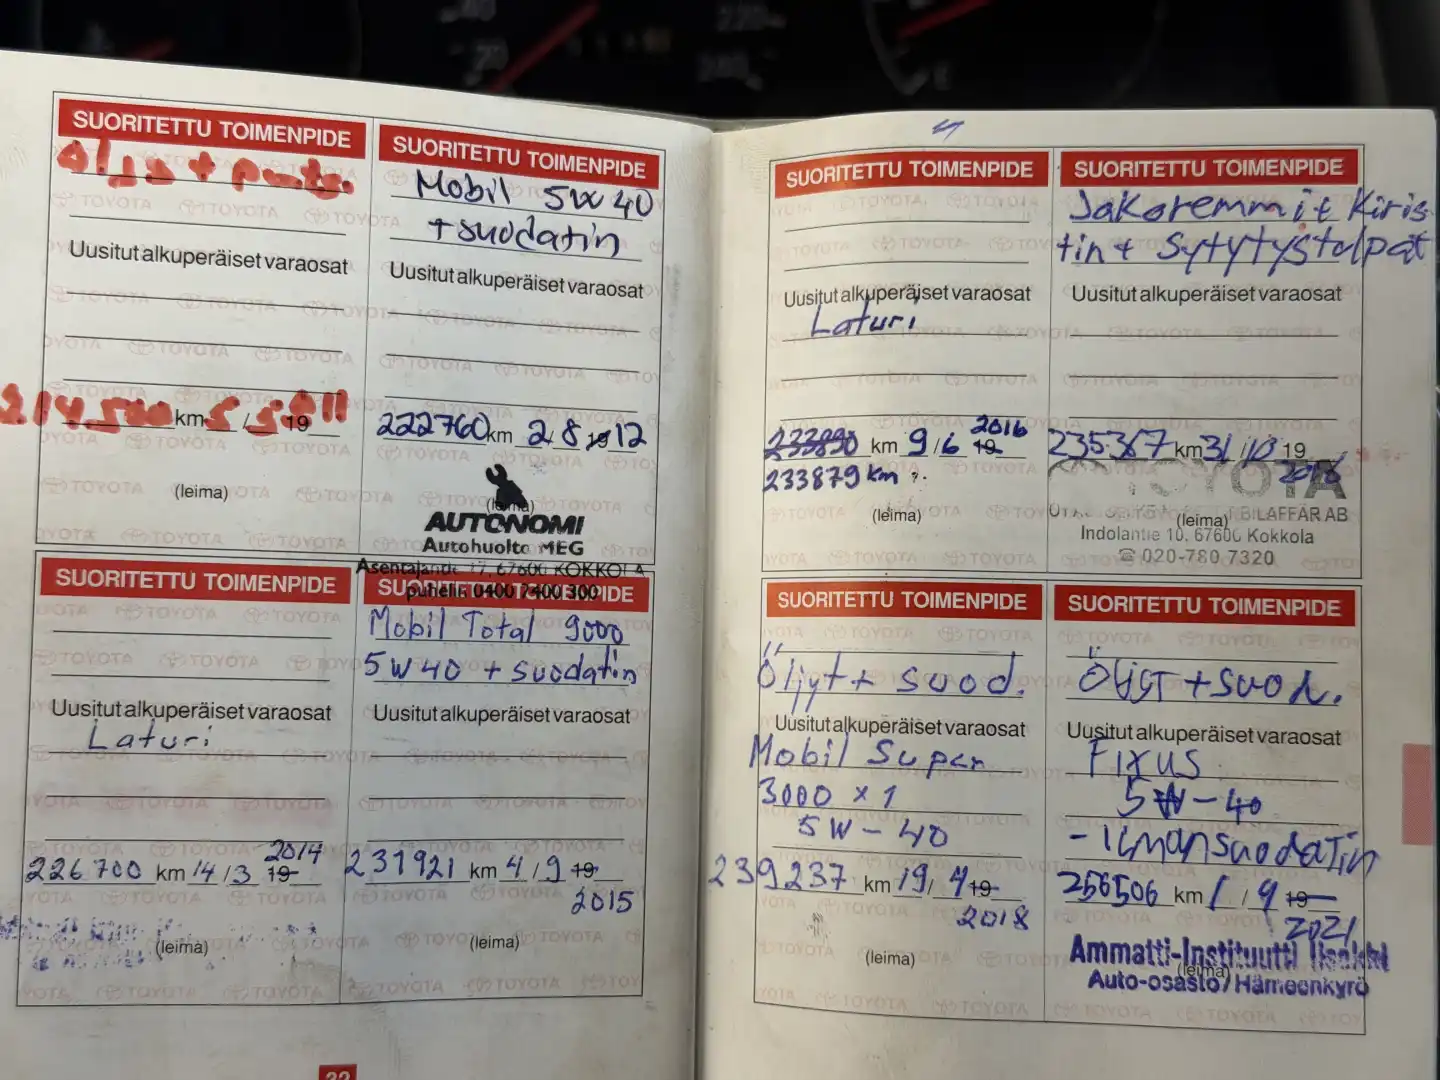 SUORITETTU TOIMENPIDE
Uusitut alkuperäiset varaosat
214.500 km 5 / 5 19 2011
(leima)
SUORITETTU TOIMENPIDE
Mobil 5W40
+ suodatin
Uusitut alkuperäiset varaosat
222760 km 2/8 19 12
(leima)
AUTONOMI
Autohuolto MEG
67600 KOKKOLA
0400 7400 300
SUORITETTU TOIMENPIDE
Uusitut alkuperäiset varaosat
Laturi
2014
226700 km 14/3 19
(leima)
SUORITETTU TOIMENPIDE
Mobil Total 9000
5W40 + suodatin
Uusitut alkuperäiset varaosat
231921 km 4/9 19
2015
(leima)
22
SUORITETTU TOIMENPIDE
Uusitut alkuperäiset varaosat
Laturi
2016
km 9/6 19
233879 km ?.
(leima)
SUORITETTU TOIMENPIDE
Jakoremmit Kiris
tin + Sytytystulpat
Uusitut alkuperäiset varaosat
235367 km 31/10 19
2016
TOYOTA
(leima) BILAFFÄR AB
Indolantie 10, 67600 Kokkola
☎ 020-780 7320
SUORITETTU TOIMENPIDE
Öljyt + suod.
Uusitut alkuperäiset varaosat
Mobil Super
3000 x 1
5W-40
239237 km 19/4 19
2018
(leima)
SUORITETTU TOIMENPIDE
Öljyt + suod.
Uusitut alkuperäiset varaosat
Fixus
5W-40
- ilmansuodatin
256506 km 1/9 19
2021
Ammatti-Instituutti Iisakki
(leima)
Auto-osasto / Hämeenkyrö